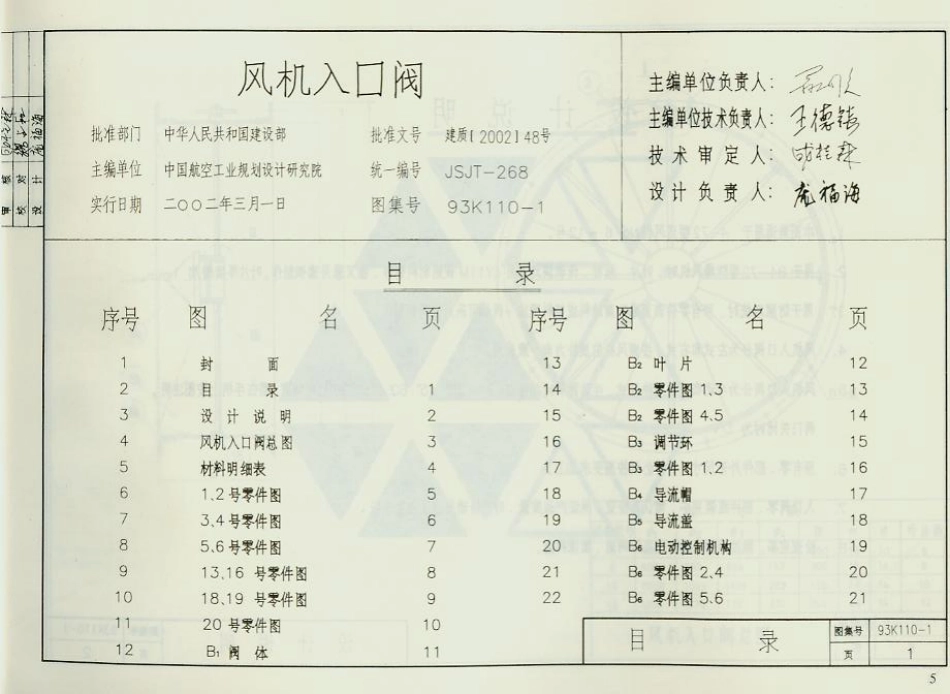 风机入口阀
批准部门 中华人民共和国建设部 批准文号 建质[2002]48号
主编单位 中国航空工业规划设计研究院 统一编号 JSJT-268
实行日期 二〇〇二年三月一日 图集号 93K110-1
主编单位负责人:
主编单位技术负责人: 王德镇
技术审定人:
设计负责人: 庞福海
目 录
序号 图 名 页 序号 图 名 页
1 封 面 13 B2 叶片 12
2 目 录 1 14 B2 零件图 1.3 13
3 设计说明 2 15 B2 零件图 4.5 14
4 风机入口阀总图 3 16 B3 调节环 15
5 材料明细表 4 17 B3 零件图 1.2 16
6 1.2号零件图 5 18 B4 导流帽 17
7 3.4号零件图 6 19 B5 导流盖 18
8 5.6号零件图 7 20 B6 电动控制机构 19
9 13,16 号零件图 8 21 B6 零件图 2.4 20
10 18,19 号零件图 9 22 B6 零件图 5.6 21
11 20 号零件图 10
12 B1 阀体 11
目 录 图集号 93K110-1
页 1
审核
校对
设计
5